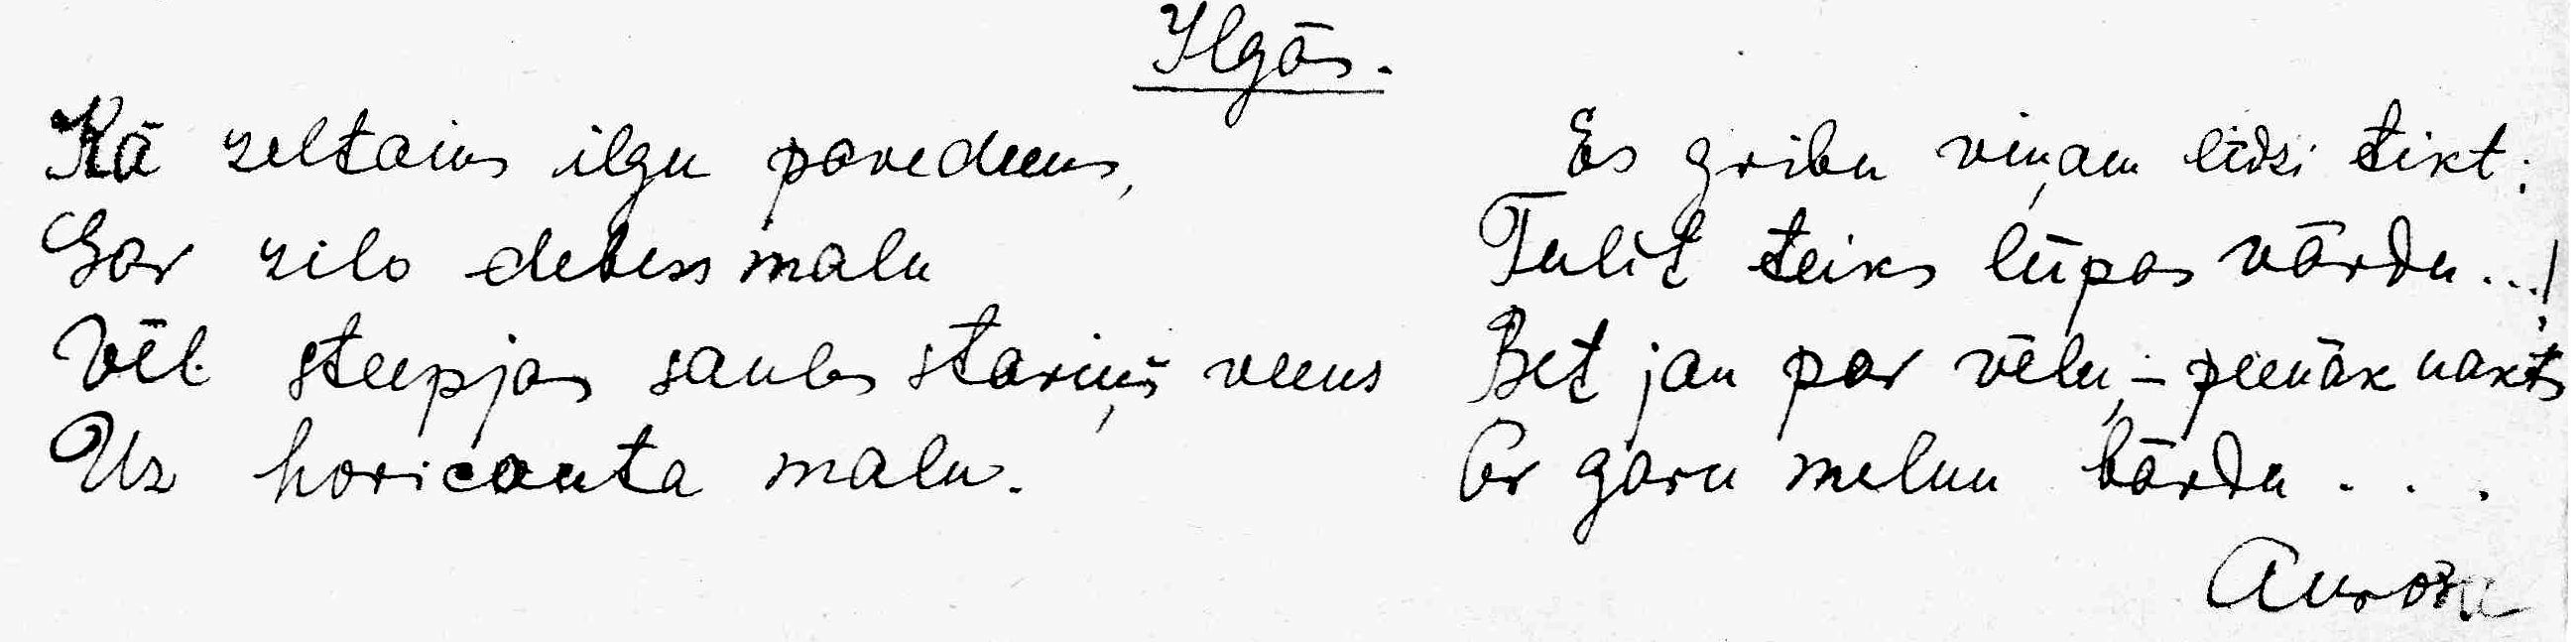 Ilgās.
Kā zeltains ilgu pavedeens,
Gar zilo debess malu
Vēl steepjas saules stariņš veens
Uz horiconta malu.
Es gribu viņam līdzi tikt:
Tulīt teiks lūpas vārdu...!
Bet jau par vēlu, – peenāk nakts
Ar garu melnu bārdu...
Aurora